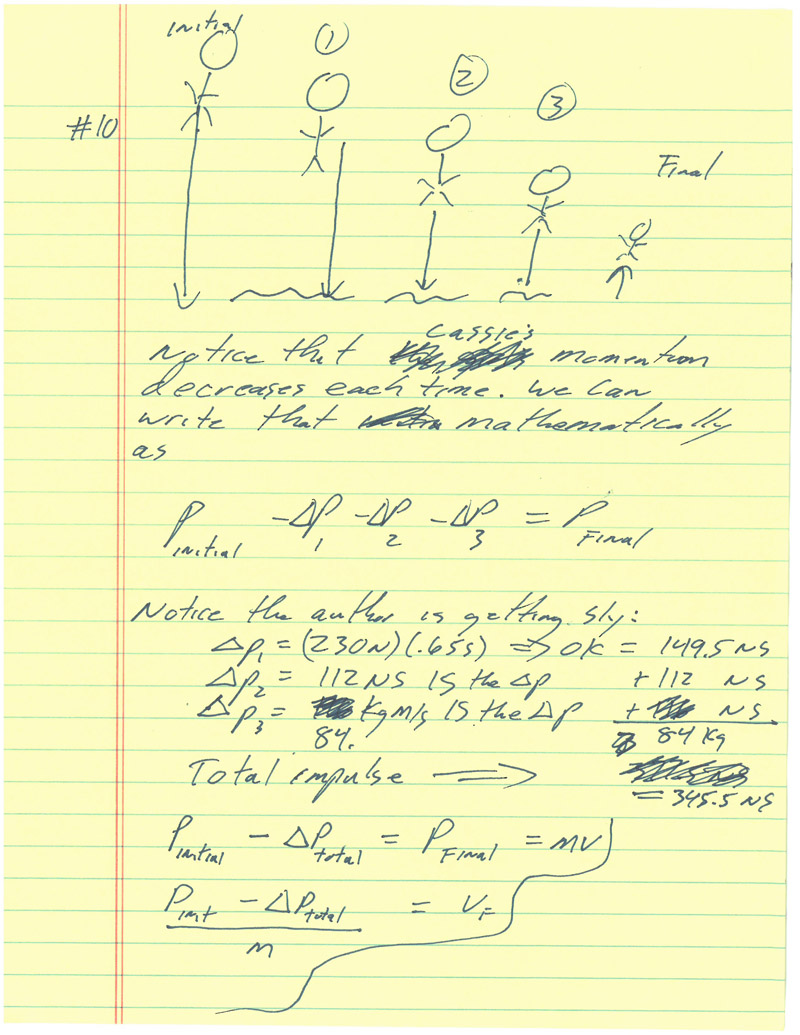 initial
① ② ③
#10
Final
Cassie's
Notice that momentum
decreases each time. We can
write that mathematically
as
P initial - ΔP 1 - ΔP 2 - ΔP 3 = P Final
Notice the author is getting sly:
Δp1 = (230N)(.65s) => OK = 149.5 NS
Δp2 = 112 NS IS the Δp + 112 NS
Δp3 = kgm/s IS the Δp + NS
84. 84 kg
Total impulse ⟹
= 345.5 NS
P initial - ΔP total = P Final = mv
P init - ΔP total = V F
m